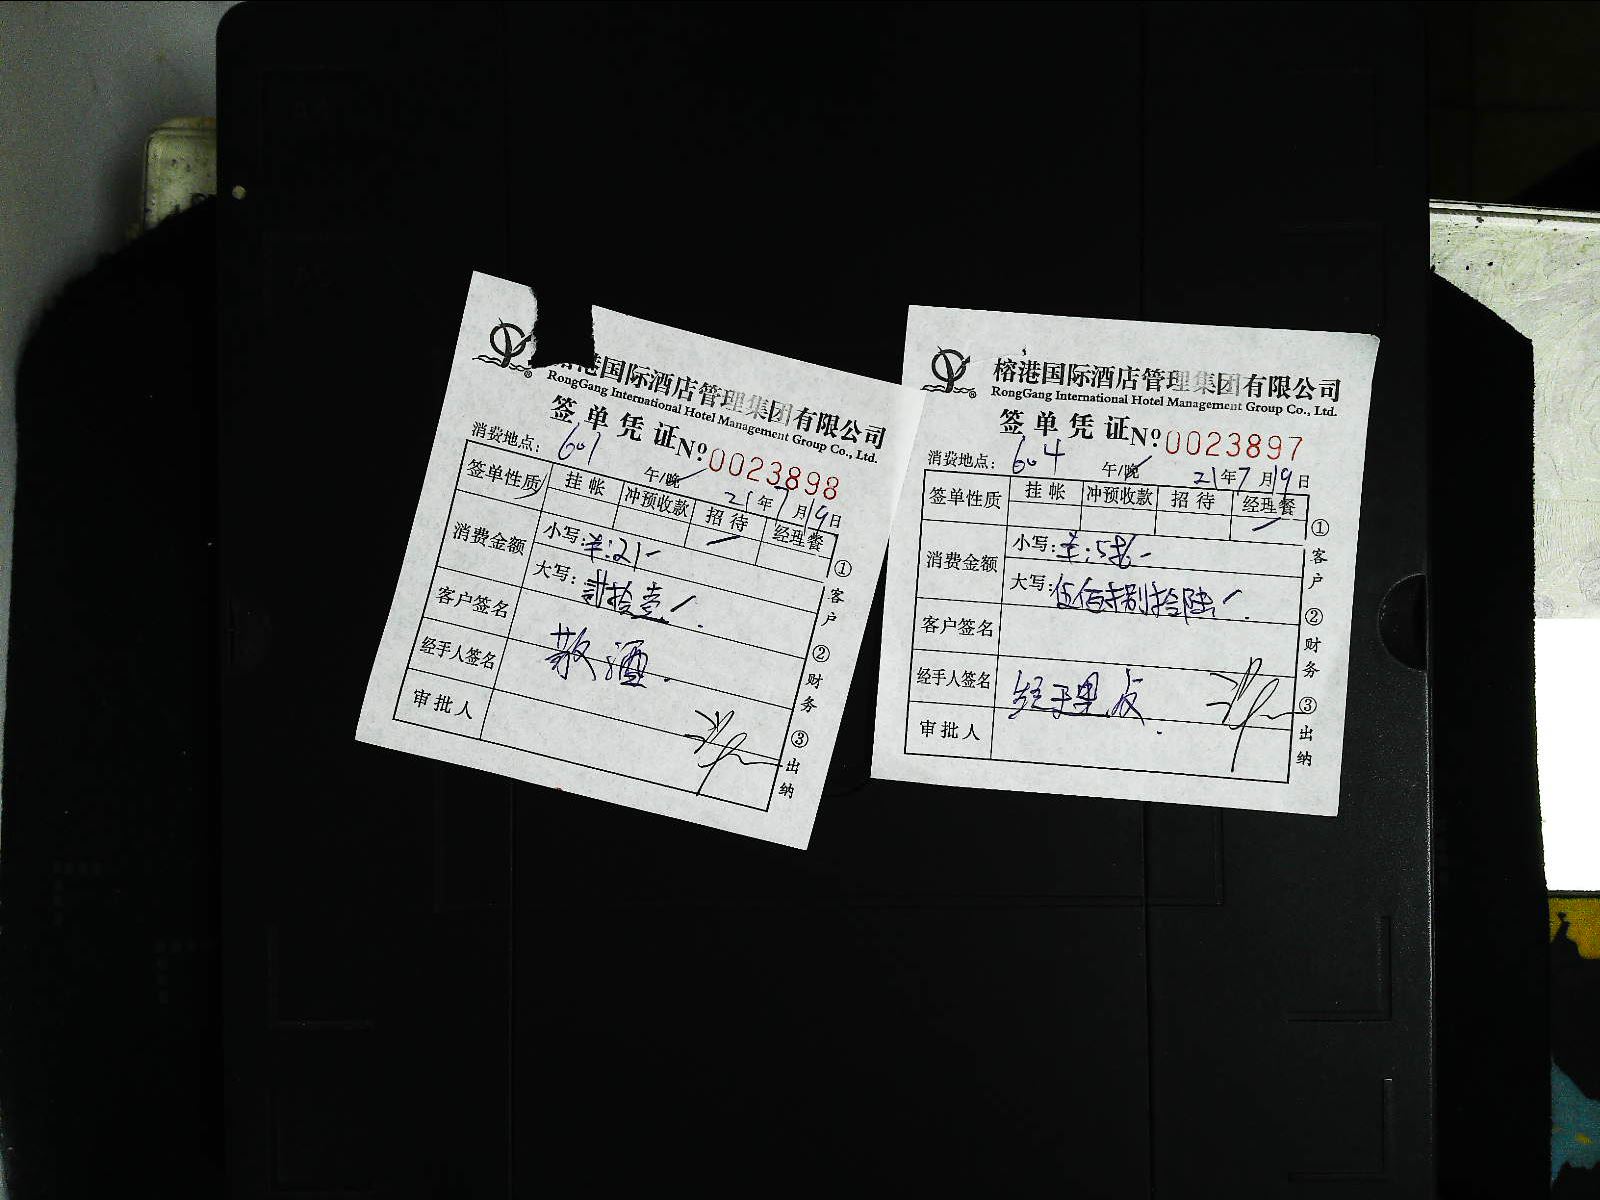 港国际酒店管理集团有限公司
RongGang International Hotel Management Group Co., Ltd.
签单凭证 № 0023898
消费地点: 601 午/晚 21年7月19日
签单性质 挂帐 冲预收款 招待 经理餐
消费金额 小写: ¥:21-
大写: 贰拾壹
客户签名
经手人签名 散酒.
审批人
① 客户 ② 财务 ③ 出纳
榕港国际酒店管理集团有限公司
RongGang International Hotel Management Group Co., Ltd.
签单凭证 № 0023897
消费地点: 604 午/晚 21年7月19日
签单性质 挂帐 冲预收款 招待 经理餐
消费金额 小写:
大写: 伍佰捌拾陆
客户签名
经手人签名 经理
审批人
① 客户 ② 财务 ③ 出纳